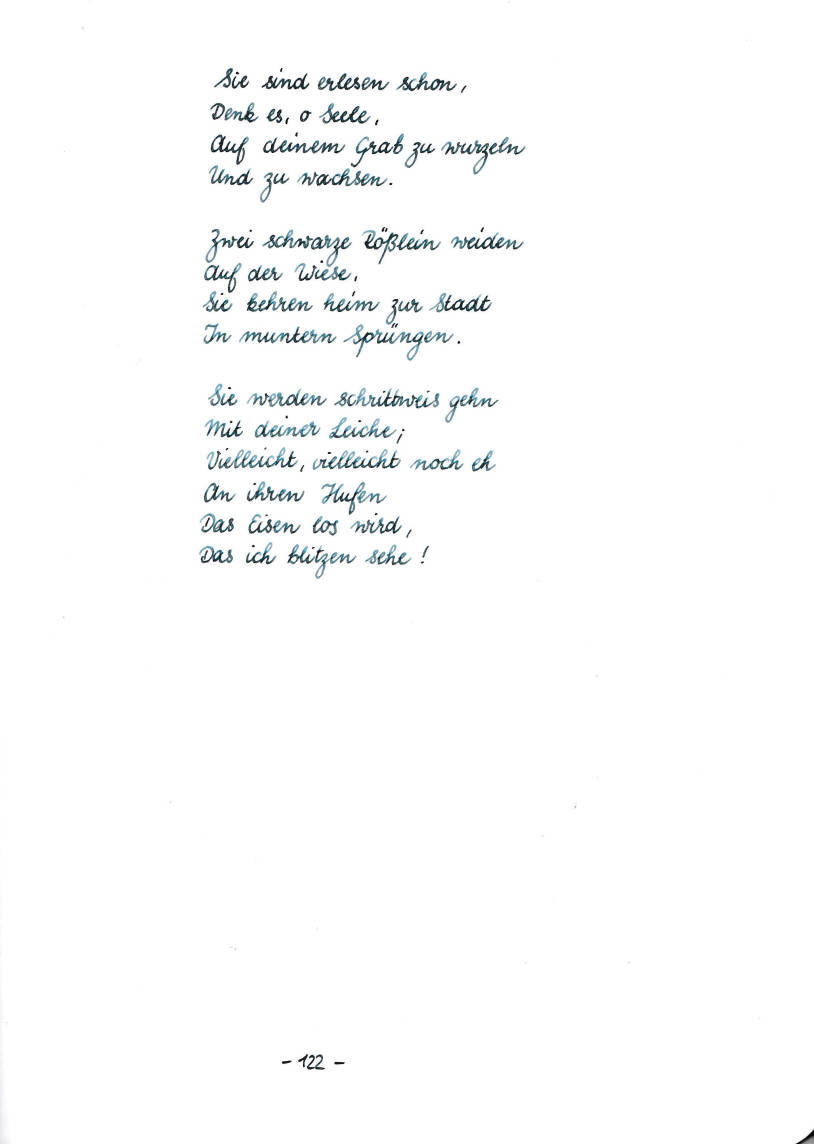 Sie sind erlesen schon,
Denk es, o Seele,
Auf deinem Grab zu wurzeln
Und zu wachsen.

Zwei schwarze Rößlein weiden
Auf der Wiese,
Sie kehren heim zur Stadt
In muntern Sprüngen.

Sie werden schrittweis gehn
Mit deiner Leiche;
Vielleicht, vielleicht noch eh
An ihren Hufen
Das Eisen los wird,
Das ich blitzen sehe!

- 122 -